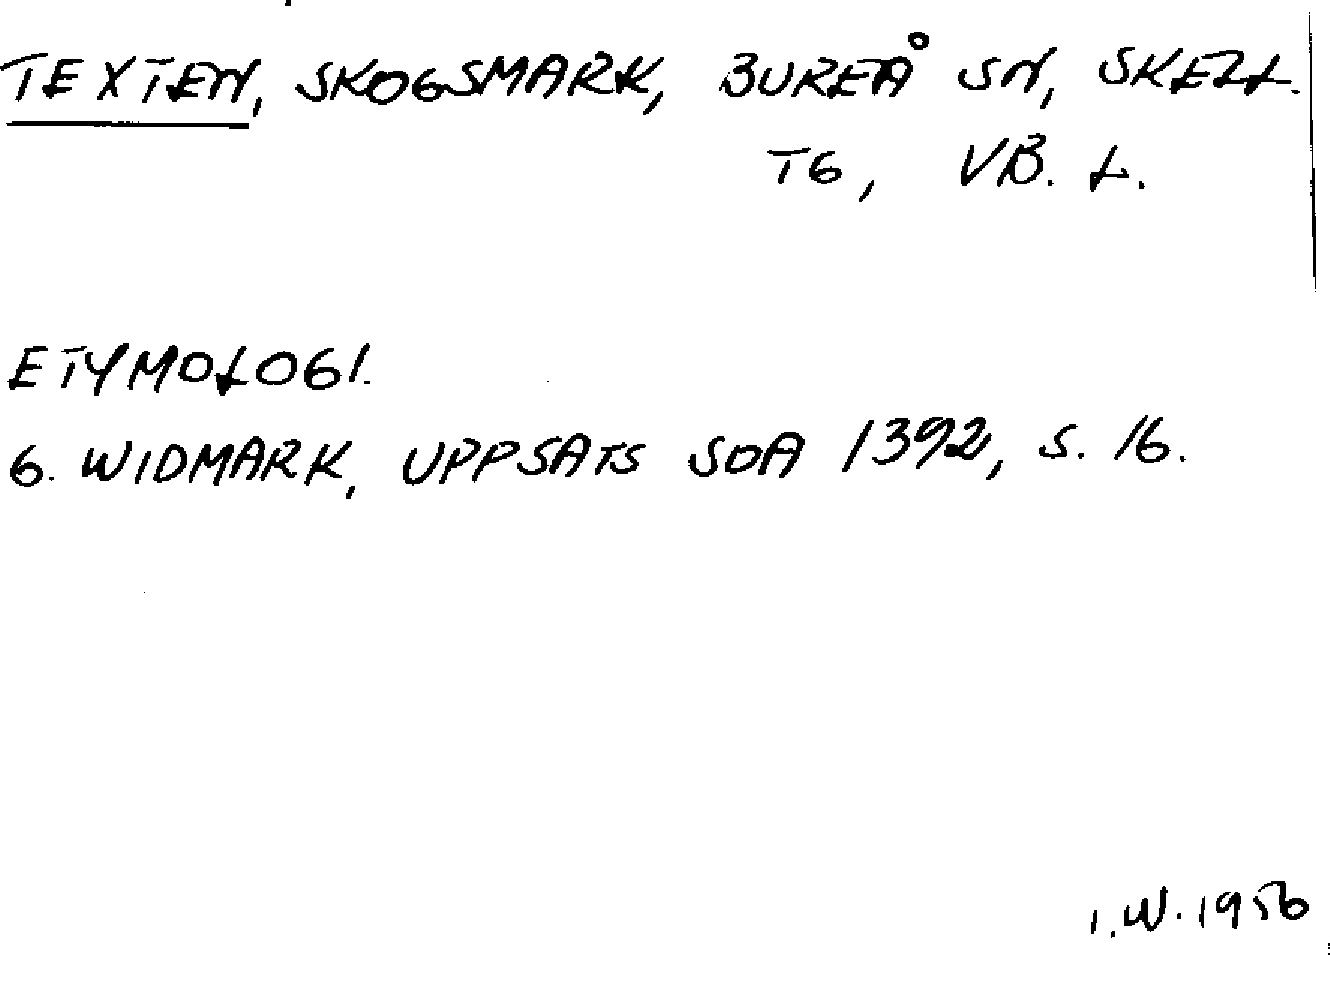 TEXTEN, SKOGSMARK, BUREÅ SN, SKELL.
TG, VB. L.
ETYMOLOGI.
G. WIDMARK, UPPSATS SOA 1392, S. 16.
I.W. 1956